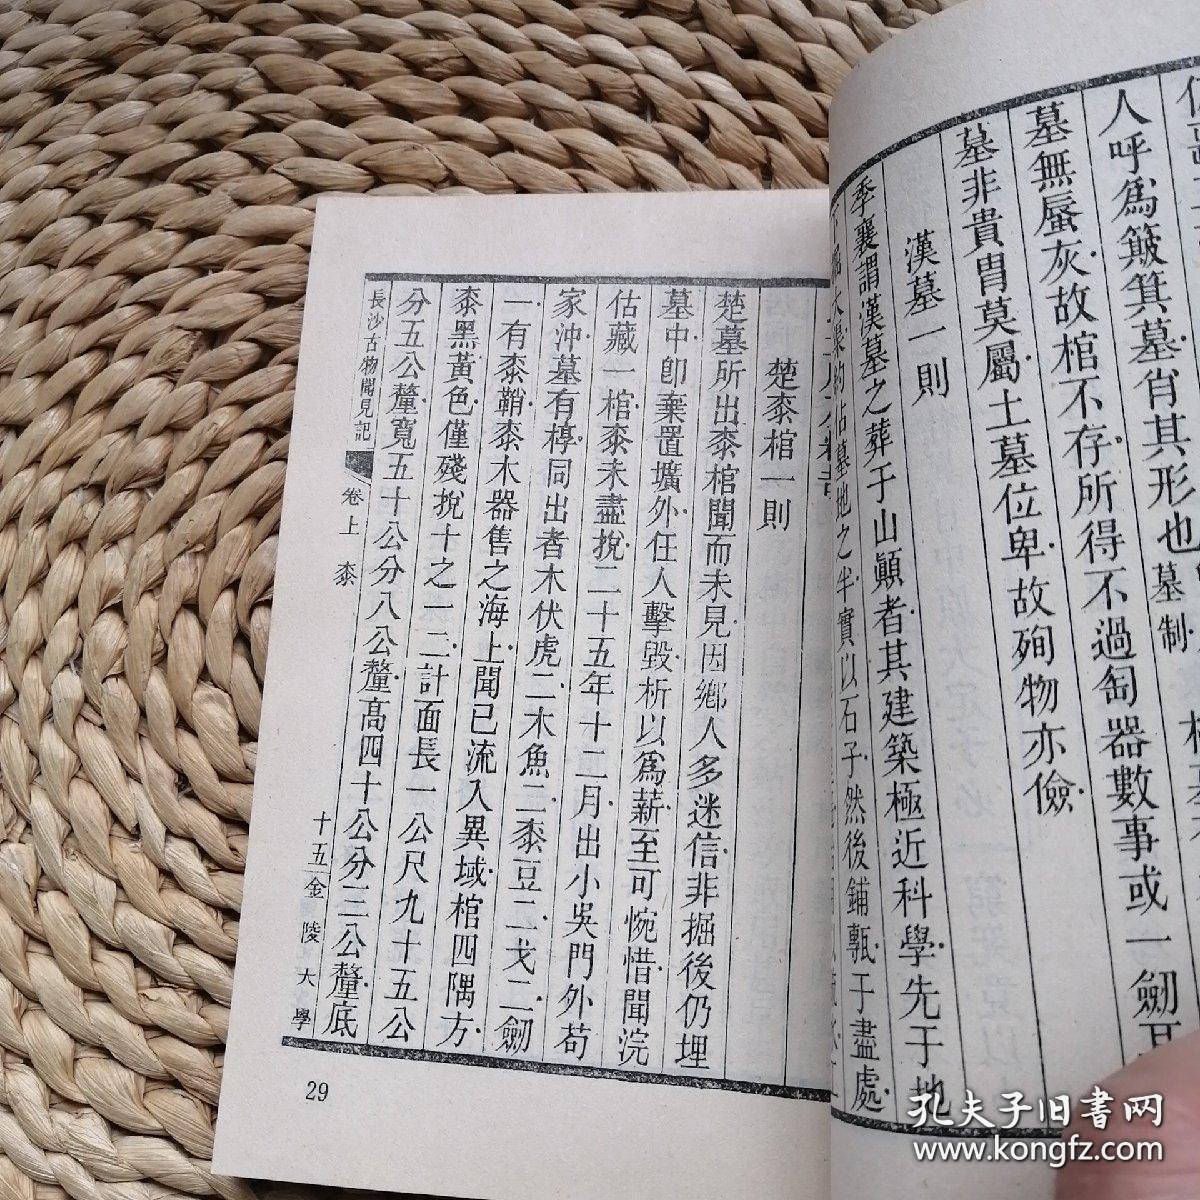 人呼爲簸箕墓肖其形也
墓制
墓無蜃灰故棺不存所得不過匋器數事或一劒
墓非貴胄莫屬土墓位卑故殉物亦儉
漢墓一則
季襄謂漢墓之葬于山顚者其建築極近科學先于地
占墓地之半實以石子然後鋪甎于盡處
楚桼棺一則
楚墓所出桼棺聞而未見因鄉人多迷信非掘後仍埋
墓中卽棄置壙外任人擊毀析以爲薪至可惋惜聞浣
估藏一棺桼未盡挩二十五年十二月出小吳門外荀
家沖墓有椁同出者木伏虎二木魚二桼豆二戈二劒
一有桼鞘桼木器售之海上聞已流入異域棺四隅方
桼黑黃色僅殘挩十之一二計面長一公尺九十五公
分五公釐寬五十公分八公釐高四十公分三公釐底
長沙古物聞見記
卷上
桼
十五
金陵大學
29
孔夫子旧书网
www.kongfz.com